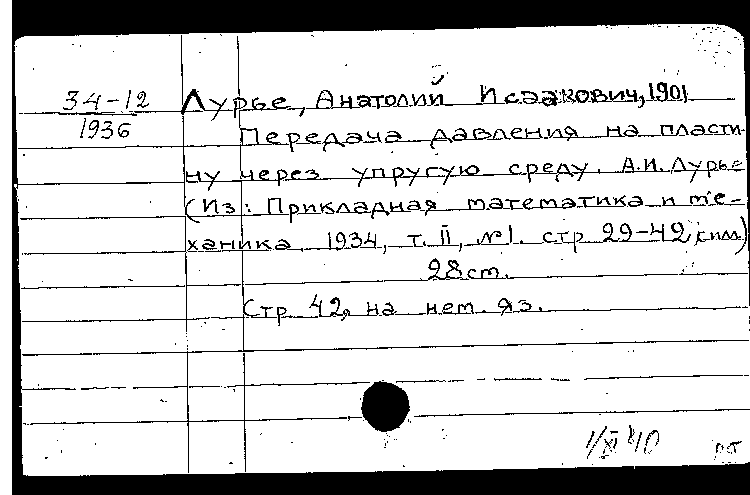 34-12
1936
Лурье, Анатолий Исаакович, 1901
Передача давления на пласти-
ну через упругую среду. А.И. Лурье
(Из: Прикладная математика и ме-
ханика. 1934, т. II, №1. стр 29-42,
28 cm.
Стр 42, на нем. яз.
1/XI 40